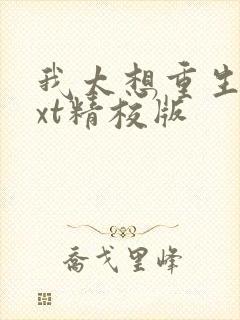 我太想重生
xt精校版
乔戈里峰